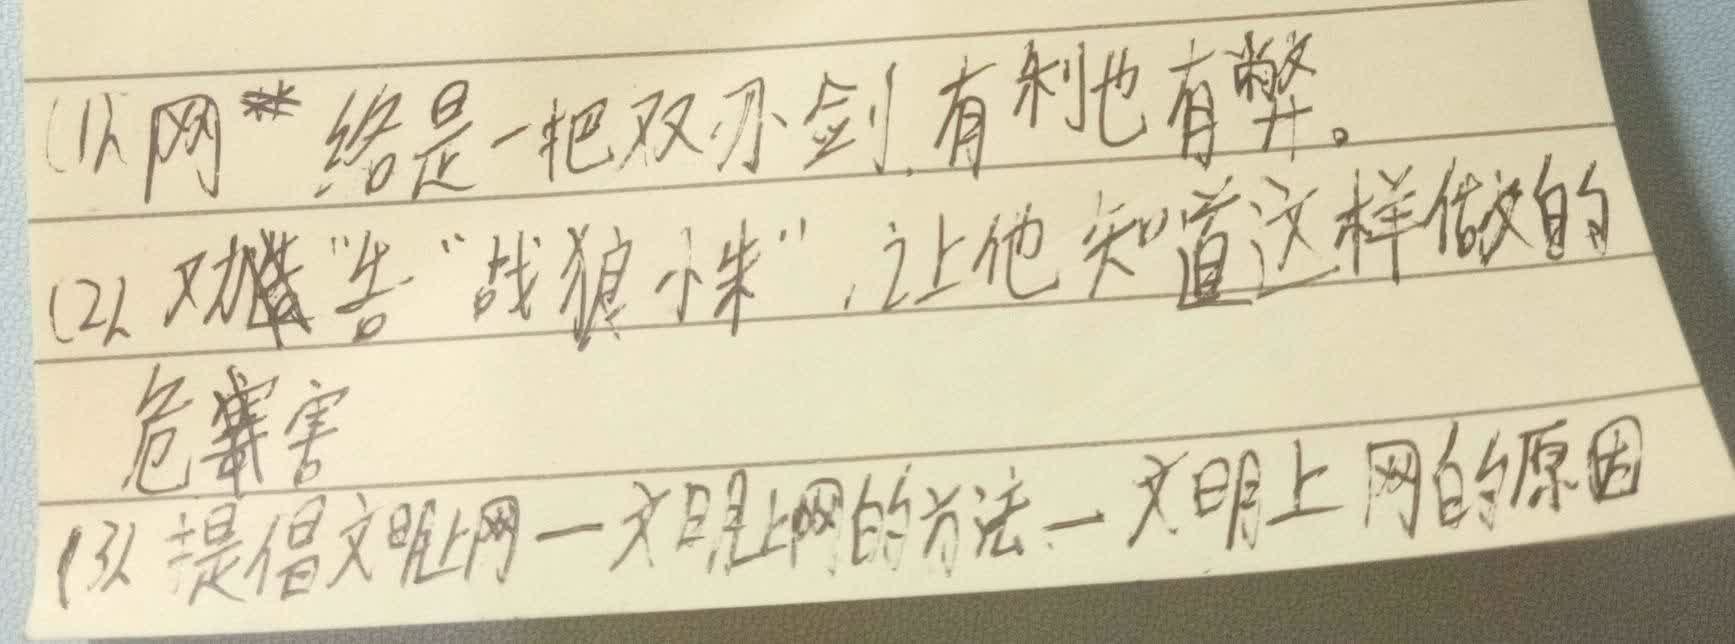 (1)、网络是一把双刃剑,有利也有弊。
(2)、劝告“战狼小朱”,让他知道这样做的
危害
(3)、提倡文明上网一文明上网的方法一文明上网的原因